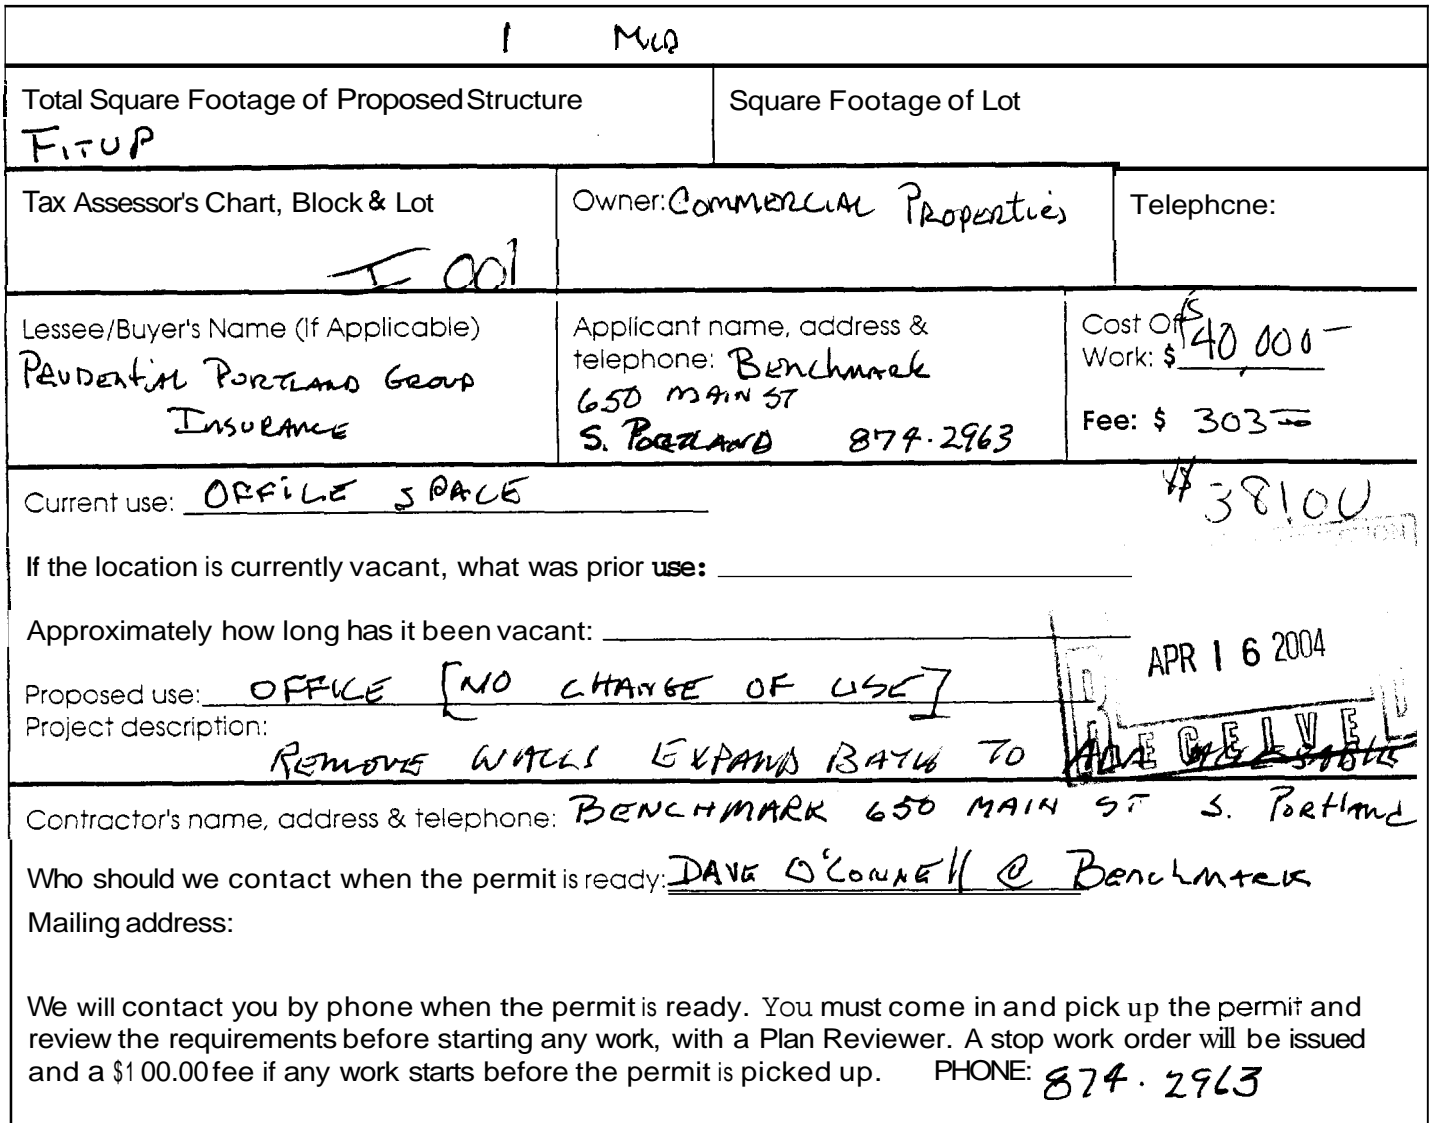 1
Total Square Footage of Proposed Structure
FITUP
Square Footage of Lot
Tax Assessor's Chart, Block & Lot
I 001
Owner: COMMERCIAL PROPERTIES
Telephcne:
Lessee/Buyer's Name (If Applicable)
PRUDENTIAL PORTLAND GROUP
INSURANCE
Applicant name, address &
telephone: BENCHMARK
650 MAIN ST
S. PORTLAND 874.2963
Cost Of
Work: $ 40,000-
Fee: $ 303
Current use: OFFICE SPACE
$38100
If the location is currently vacant, what was prior use:
Approximately how long has it been vacant:
APR 16 2004
RECEIVED
Proposed use: OFFICE [NO CHANGE OF USE]
Project description:
REMOVE WALLS EXPAND BATH TO ADA ACCESSABLE
Contractor's name, address & telephone: BENCHMARK 650 MAIN ST S. PORTLAND
Who should we contact when the permit is ready: DAVE O'CONNELL @ BENCHMARK
Mailing address:
We will contact you by phone when the permit is ready. You must come in and pick up the permit and
review the requirements before starting any work, with a Plan Reviewer. A stop work order will be issued
and a $100.00 fee if any work starts before the permit is picked up. PHONE: 874.2963